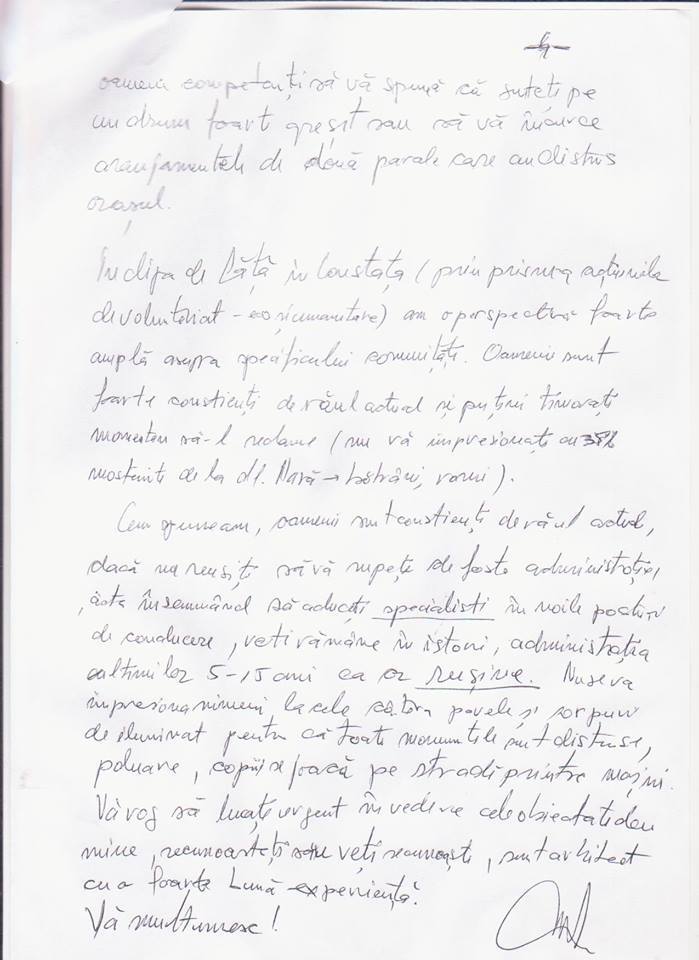 4
oameni competenți să vă spună că sunteți pe
un drum foart greșit sau să vă încurce
aranjamentele de două parale care au distrus
orașul.
În clipa de față în Constața (prin prisma acțiunile
de voluntariat - eco și umanitare) am o perspectivă foarte
amplă asupra specificului comunității. Oamenii sunt
foarte constienți de răul actual și puțini timorați
momentan să-l reclame (nu vă impresionați cu 38%
mostenite de la dl. Mară → bătrâni, romi).
Cum spuneam, oamenii sunt constienți de răul actual,
dacă nu reușiți să vă rupeți de fosta administrație,
asta însemnând să aduceți specialisti în noile poziții
de conducere, veti rămâne în istorie, administrația
ultimilor 5-15 ani ca o rușine. Nu se va
impresiona nimeni la cele câteva pavele și corpuri
de iluminat pentru că toate monumentele sunt distruse,
poluare, copiii se joacă pe stradă printre mașini.
Vă rog să luați urgent în vedere cele obiectate de
mine, recunoasteți sau veți recunoaște, sunt arhitect
cu o foarte bună experiență.
Vă multumesc!